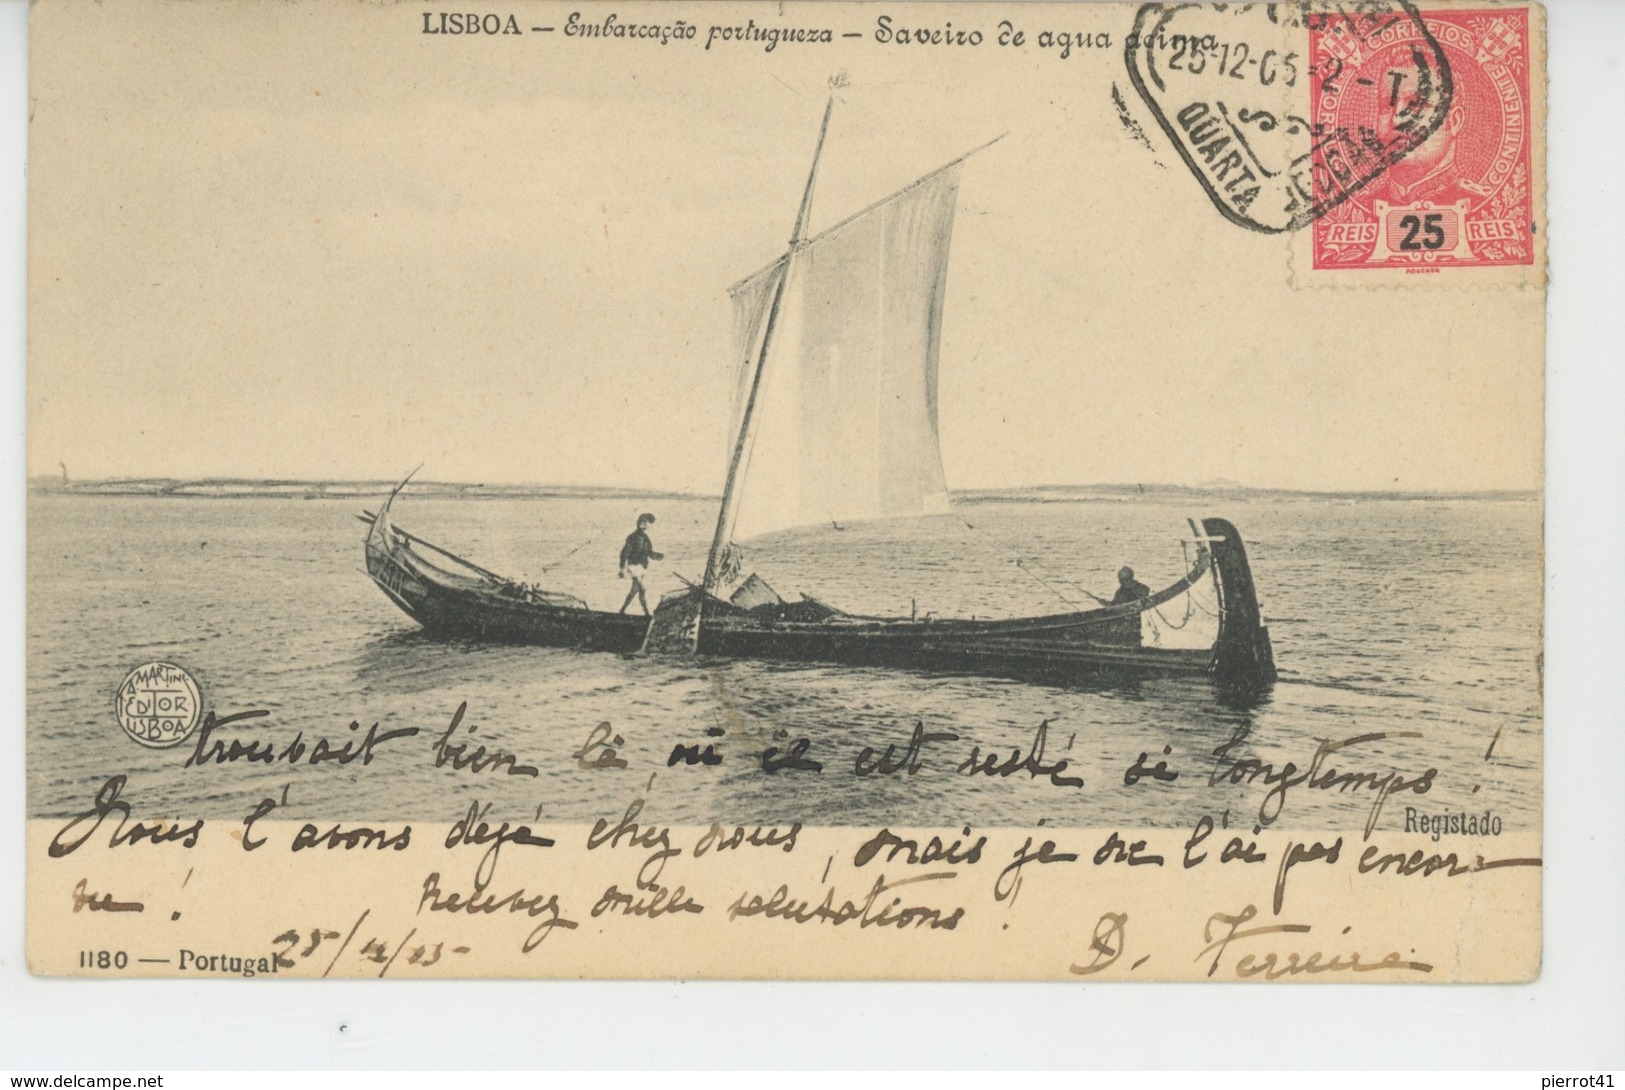 LISBOA — Embarcação portugueza — Saveiro de agua acima
25-12-05 - 2 - T
QUARTA SECÇÃO
CORREIOS
CONTINENTE
REIS 25 REIS
A MARTINS
EDITOR
LISBOA
trouvait bien là, où il est resté si longtemps!
Registado
Nous l'avons déjà chez nous, mais je ne l'ai pas encor-
vu! Recevez mille salutations!
1180 — Portugal 25/12/05 D. Ferreira
pierrot41
www.delcampe.net